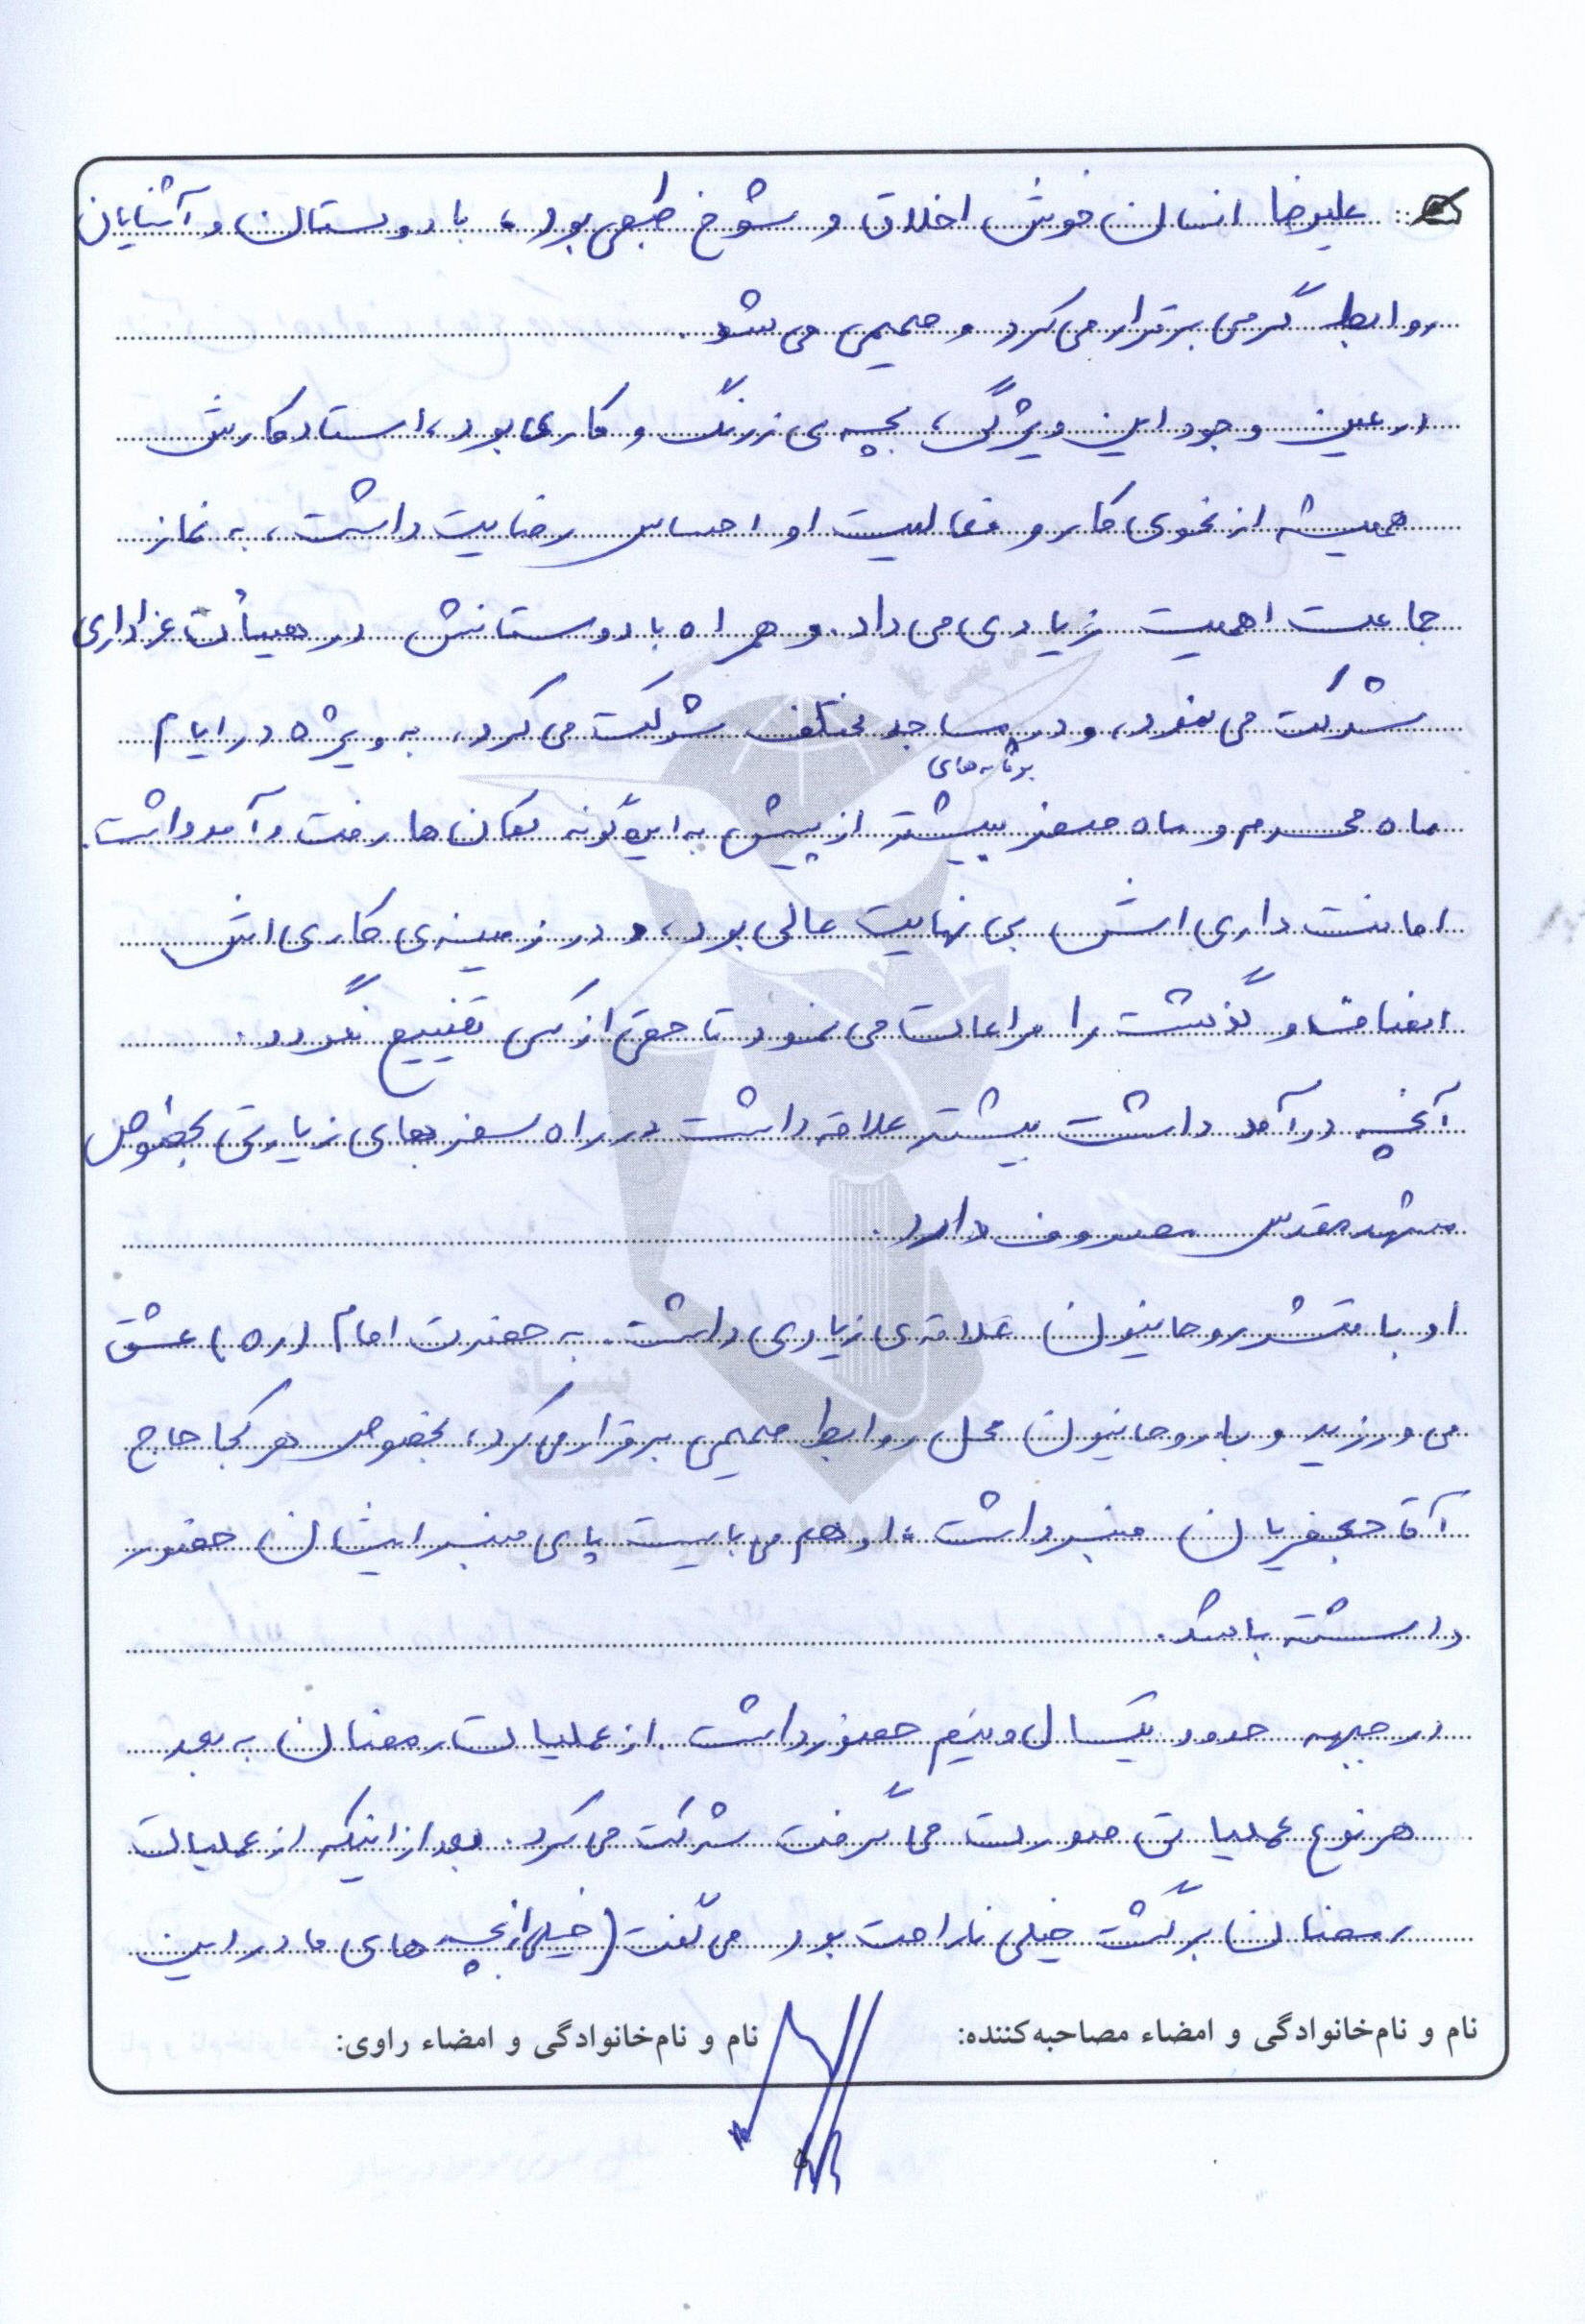 علیرضا انسان خوش اخلاق و شوخ طبعی بود، با دوستان و آشنایان
روابط گرمی برقرار می‌کرد و صمیمی می‌شد.
در عین وجود این ویژگی، بچه‌ی زرنگ و کاری بود، استاد کارش
همیشه از نحوی کار و فعالیت او احساس رضایت داشت، به نماز
جماعت اهمیت زیادی می‌داد. و همراه با دوستانش در هیأت عزاداری
شرکت می‌نمود، و در مساجد مختلف شرکت می‌کرد، به ویژه در ایام
برنامه‌های
ماه محرم و ماه صفر بیشتر از پیش به این‌گونه مکان‌ها رفت و آمد داشت.
امانت داری‌اش بی نهایت عالی بود، و در زمینه‌ی کاری‌اش
انصاف و گذشت را مراعات می‌نمود تا حقی از کسی تضییع نگردد.
آنچه درآمد داشت بیشتر علاقه داشت در راه سفرهای زیارتی بخصوص
مشهد مقدس مصروف دارد.
او با قشر روحانیون علاقه‌ی زیادی داشت. به حضرت امام (ره) عشق
می‌ورزید و با روحانیون محل روابط صمیمی برقرار می‌کرد، بخصوص هر کجا حاج
آقا جعفریان منبر داشت، او هم می‌بایست پای منبر ایشان حضور
داشته باشد.
در جبهه حدود یکسال و نیم حضور داشت. از عملیات رمضان به بعد
هر نوع عملیاتی صورت می‌گرفت شرکت می‌کرد. بعد از اینکه از عملیات
رمضان برگشت خیلی ناراحت بود می‌گفت (خیلی از بچه‌های ما در این
نام و نام‌خانوادگی و امضاء مصاحبه‌کننده: نام و نام‌خانوادگی و امضاء راوی: